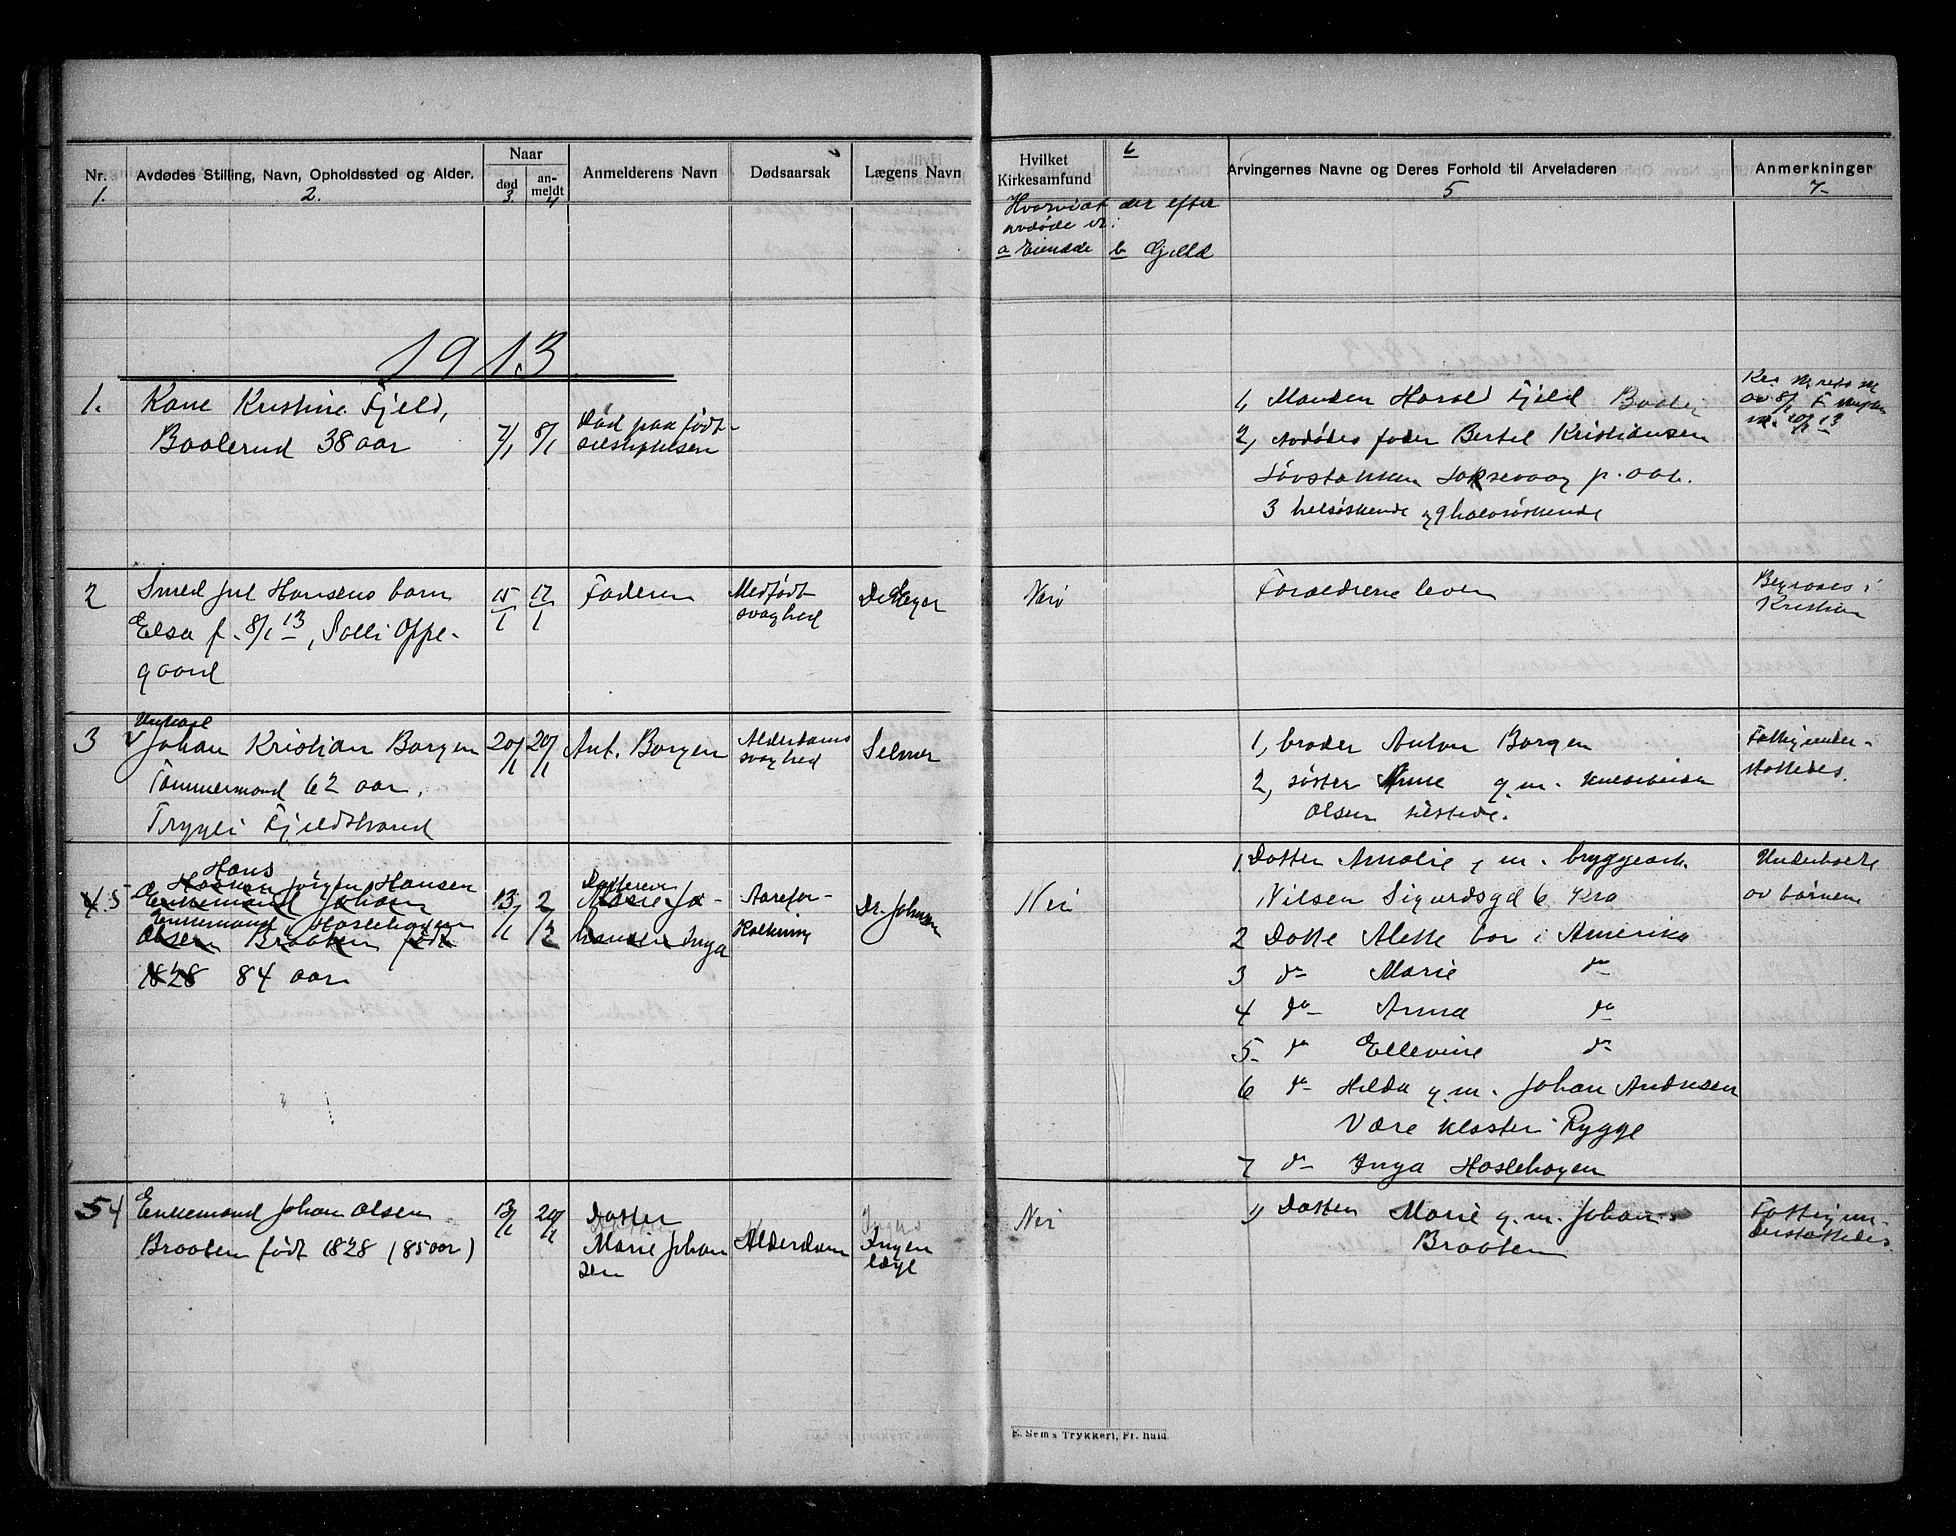 Nr. Avdødes Stilling, Navn, Opholdssted og Alder. Naar død an-meldt Anmelderens Navn Dødsaarsak Lægens Navn Hvilket Kirkesamfund Arvingernes Navne og Deres Forhold til Arveladeren Anmerkninger
1. 2. 3. 4 6 5 7
Hvorvidt der efter
avdøde er:
a Eiendde b Gjeld
1913
1. Kone Kristine Fjeld,
Baalerud 38 aar
7/1 8/1
Død paa født-
selsstiftelsen
1, Manden Harald Fjeld
2, Avdødes fader Bertel Kristiansen
p. aat.
3 helsøskende og halvsøskende
av 8/1
2 Smed Jul Hansens barn
Elsa f. 8/1 13, Solli Oppe-
gaard
15/1 17/1
Faderen
Medfødt
svaghed
Nei
Forældrene lever
Begraves i
Kristian
3 Ungkarl
Johan Kristian Borgen
Tømmermand 62 aar,
Trygli Fjeldstrand
20/1 20/1
Ant. Borgen
Alderdoms
svaghed
Selmer
1, broder Anton Borgen
2, søster Anne g.m.
Olsen tilstede.
Fattigunder-
støttedes.
4. 5 Hans
Jørgen Hansen
Enkemand Johan
Enkemand Haslehagen
Olsen Braaten født
1828 84 aar
13/1 2/2
Datteren
Marie Jo-
hansen Inga
Aarefor-
kalkning
Dr. Johnsen
Nei
1. Datter Amalie g.m. bryggearb.
Nilsen Sigurdsgd 6 Kra
2 Datte Alette bor i Amerika
3 do Marie do
4 do Anna do
5 do Ellevine do
6 do Hilda g.m. Johan Andresen
Værne kloster Rygge
7 do Inga Haslehagen
Underholdt
av børnene
5 4 Enkemand Johan Olsen
Braaten født 1828 (85 aar)
13/1 20/1
Datter
Marie Johan
sen
Alderdom
Ingen
læge
Nei
1, Datter Marie g.m. Johan
Braaten
Fattigun-
derstøttedes.
E. Sem's Trykkeri, Fr. hald.